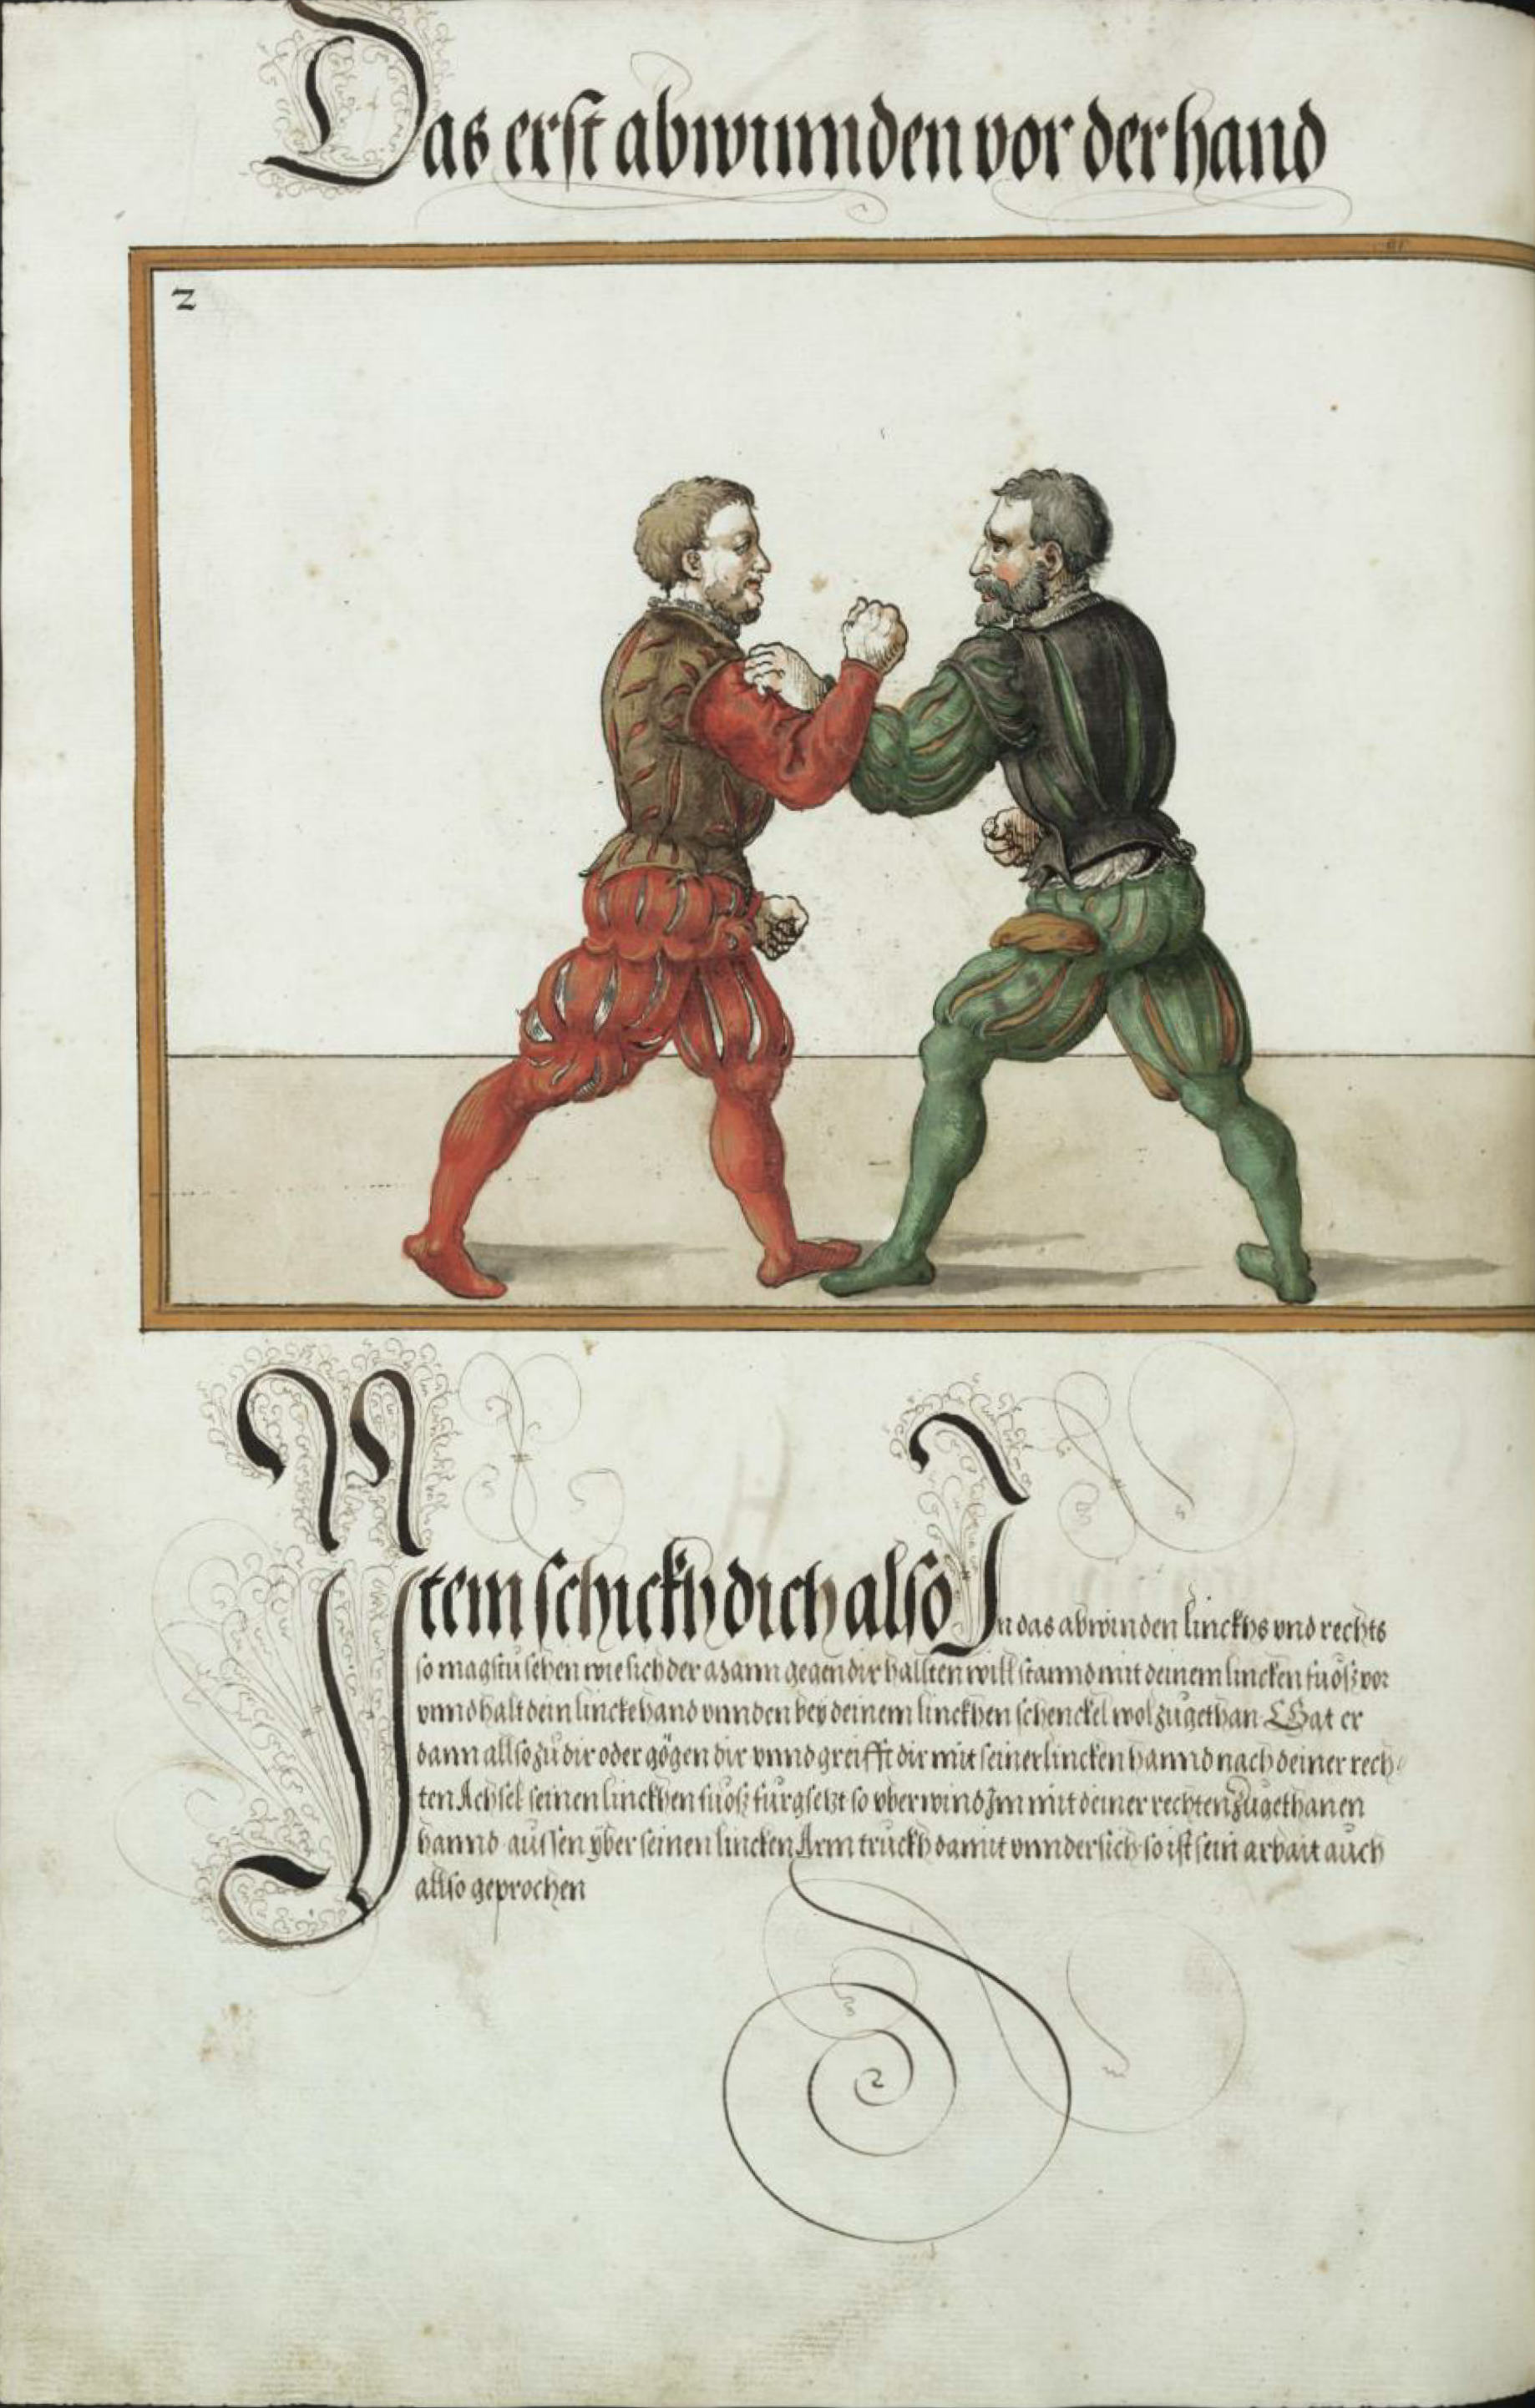 Das erst abwinnden vor der hand
2
Item schickh dich also In das abwinden linckhs vnd rechts
so magstu sehen wie sich der Mann gegen dir hallten will stannd mit deinem lincken fuosz vor
vnnd halt dein lincke hand vnnden bey deinem linckhen schenckel wol zugethan Gat er
dann allso zu dir oder gögen dir vnnd greifft dir mit seiner lincken hannd nach deiner rech-
ten Achsel seinen linckhen fuosz fürgsetzt so vberwind Im mit deiner rechten Zugethanen
hannd aussen yber seinen lincken Arm truckh damit vnndersich so ist sein arbait auch
allso geprochen